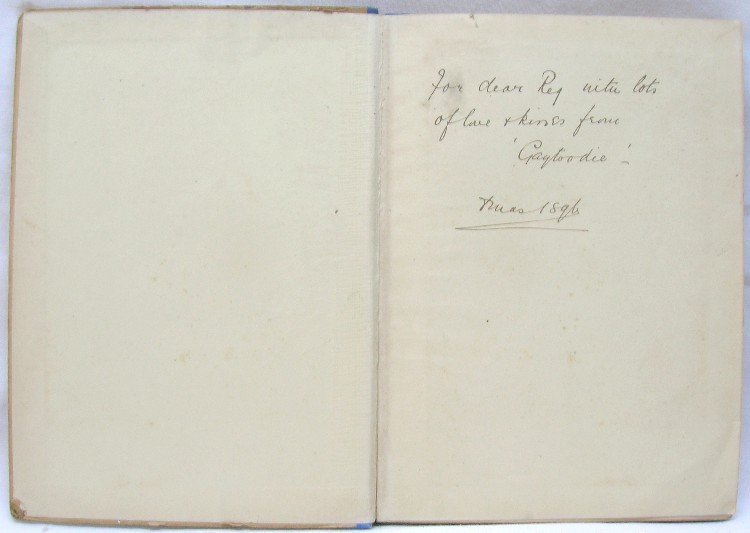 For dear Reg with lots
of love & kisses from
'Gaytoodie'
Xmas 1896